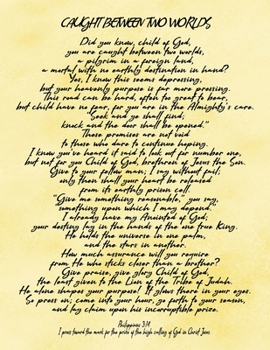 CAUGHT BETWEEN TWO WORLDS,
Did you know, child of God,
you are caught between two worlds,
a pilgrim in a foreign land,
a mortal with no earthly destination in hand?
Yes, I know this seems depressing,
but your heavenly purpose is far more pressing.
This road can be hard, often to great to bear,
but child have no fear, for you are in the Almighty's care.
"Seek and ye shall find;
knock and the door shall be opened."
These promises are not void
to those who dare to continue hoping.
I know you've heard it said to look out for number one,
but not for you Child of God, brethren of Jesus the Son.
Give to your fellow man; I say without fail;
only then shall your heart be released
from its earthly prison cell.
"Give me something reasonable," you say,
something upon which I may depend.
I already have my Anointed of God;
your destiny lay in the hands of the one true King.
He holds the universe in one palm,
and the stars in another.
How much assurance will you require
from He who sticks closer than a brother?
Give praise, give glory Child of God,
the least given to the Lion of the Tribe of Judah.
He alone shapes your purpose. It dawns before your eyes.
So press on; come into your hour, go forth to your season,
and lay claim upon his incorruptible prize.
Philippians 3:14
I press toward the mark for the prize of the high calling of God in Christ Jesus